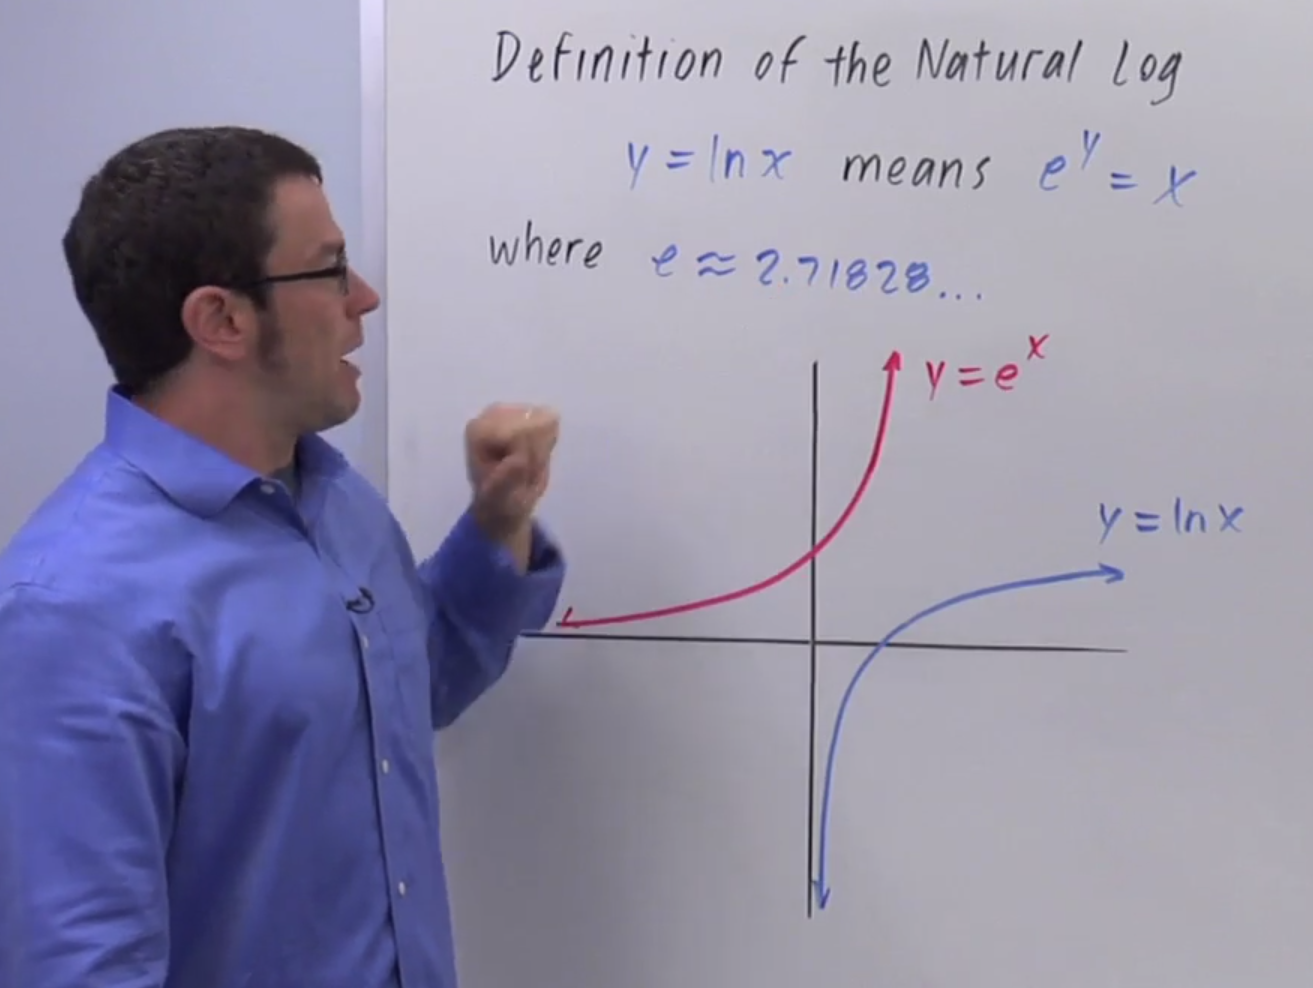 Definition of the Natural Log
y = ln x means e^y = x
where e ≈ 2.71828...
y = e^x
y = ln x